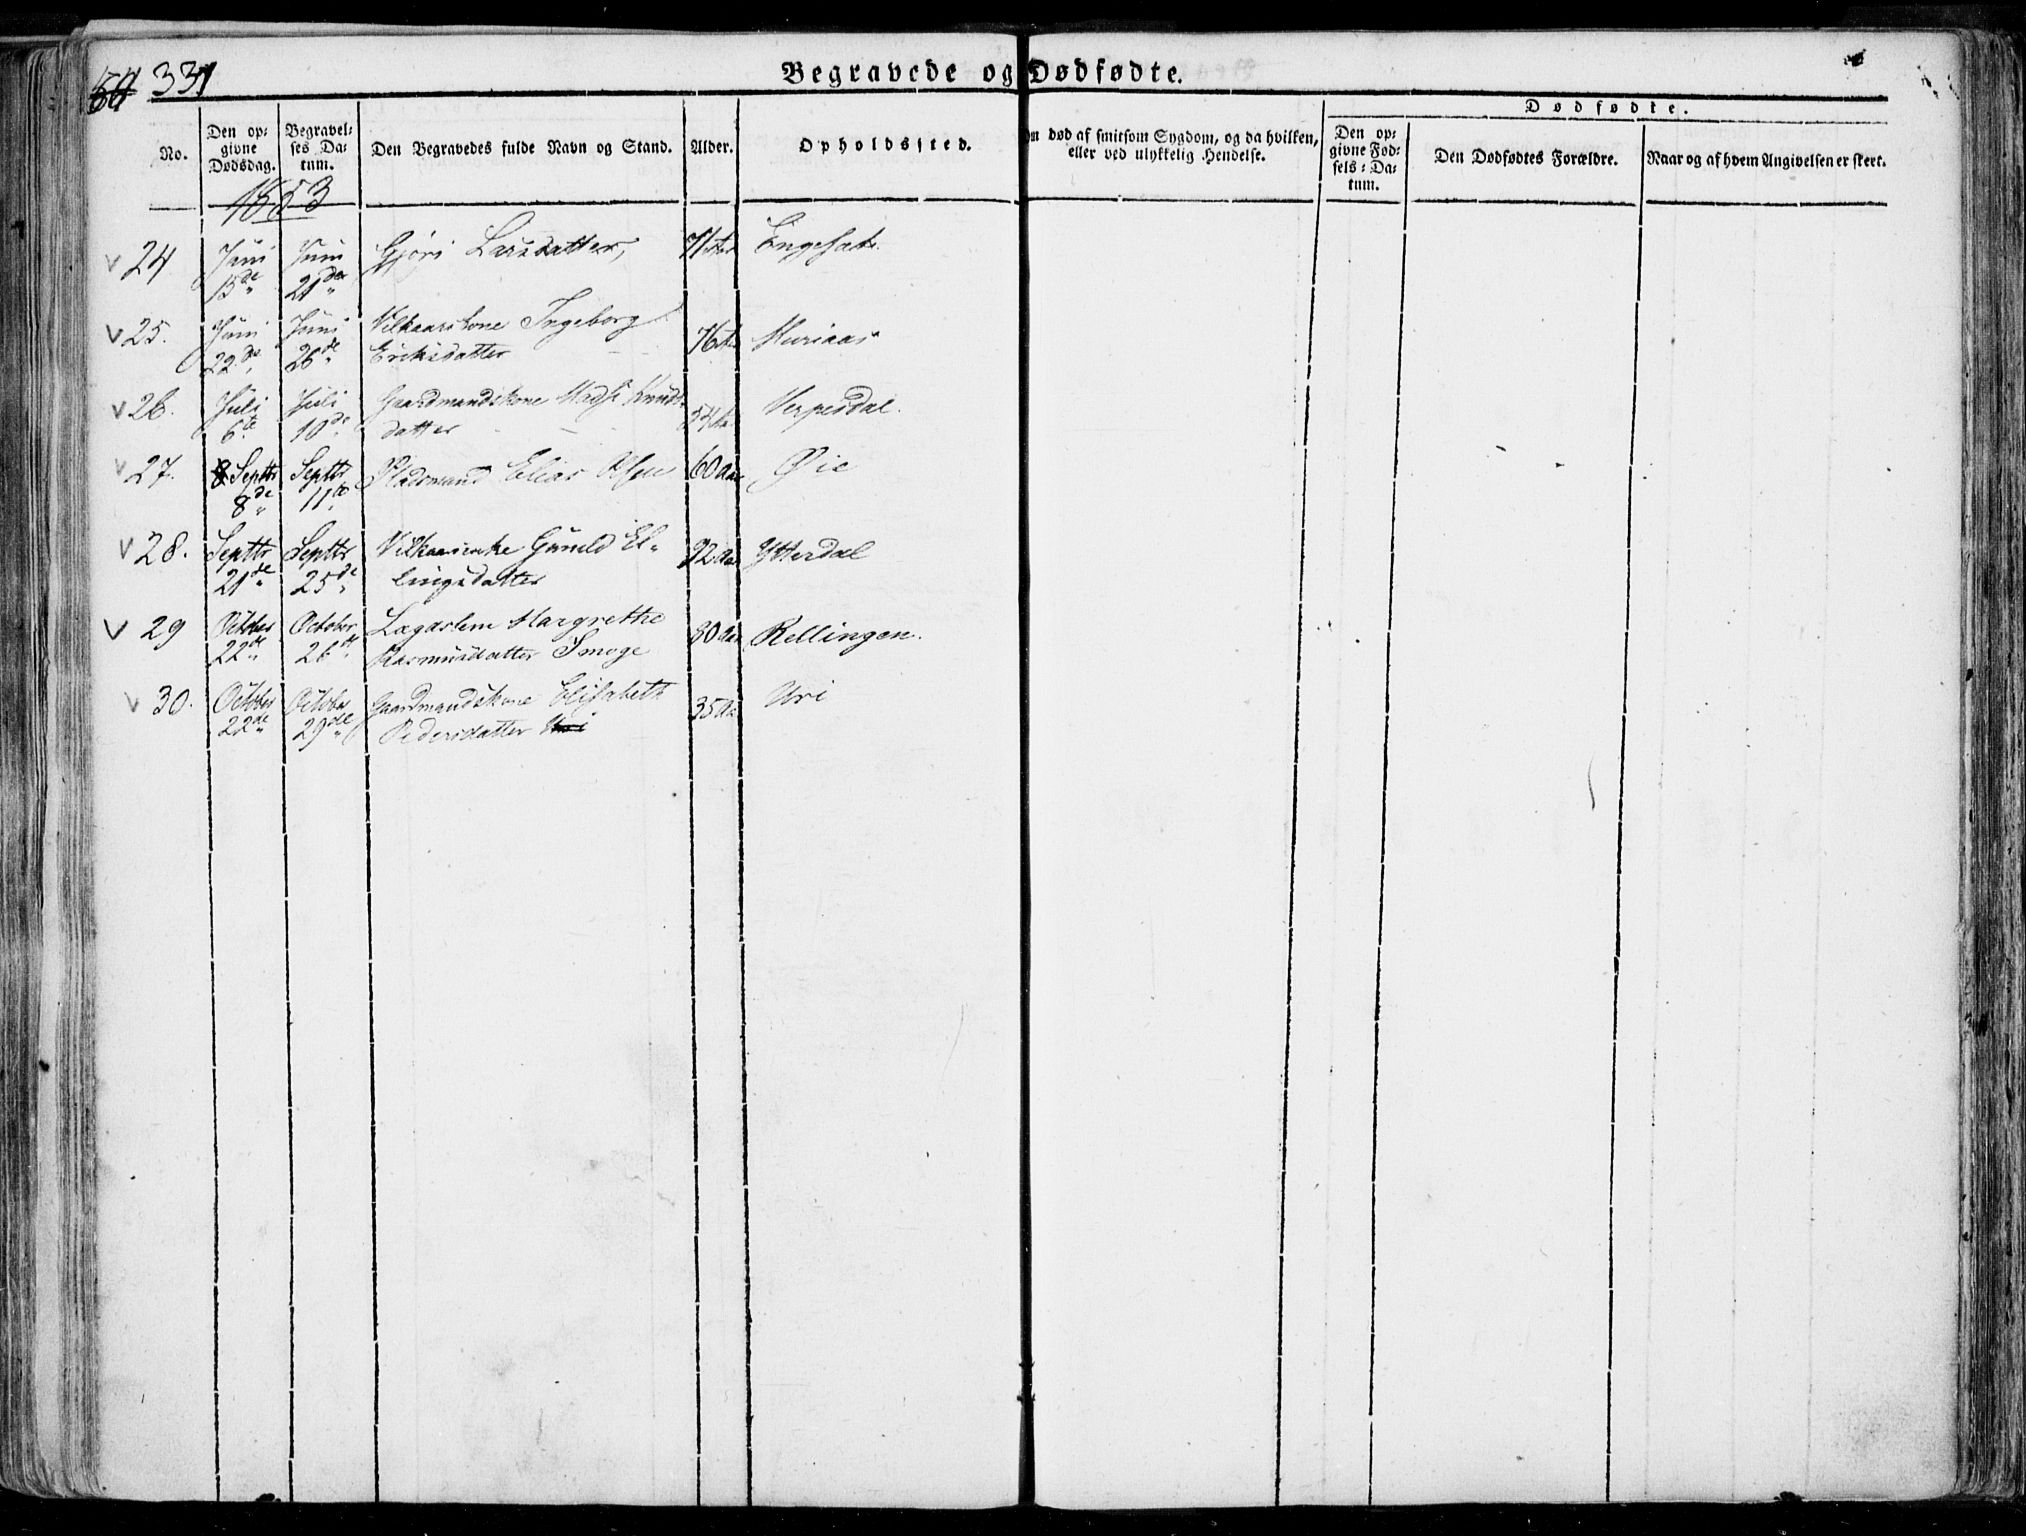 331
Begravede og Dødfødte.
No.
Den opgivne Dødsdag.
Begravelses Datum.
Den Begravedes fulde Navn og Stand.
Alder.
Opholdssted.
død af smitsom Sygdom, og da hvilken,
eller ved ulykkelig Hendelse.
Dødfødte.
Den opgivne Fødsels-Datum.
Den Dødfødtes Forældre.
Naar og af hvem Angivelsen er skeet.
1853
24 Juni Juni Gjøri Larsdatter, 71
15de 21de
25. Juni Juni Vilkaarskone Ingeborg 76 Muriaas
22de 26de Eriksdatter
26. Juli Juli Gaardmandskone Knuds
6te 10de datter 54 Verpesdal.
27. Septbr Septbr Pladsmand Elias Olsen 60 Aar Øie
8de 11te
28. Septbr Septbr Vilkaarsenke Gunild El-
21de 25de lingsdatter Ytterdal
29 October October Lægdslem Margrethe
22de 26de Rasmusdatter Smoge 80 Aar Rellingen.
30. October October Gaardmandskone Elisabeth 35 Aar Uri
22de 29de Pedersdatter Uri